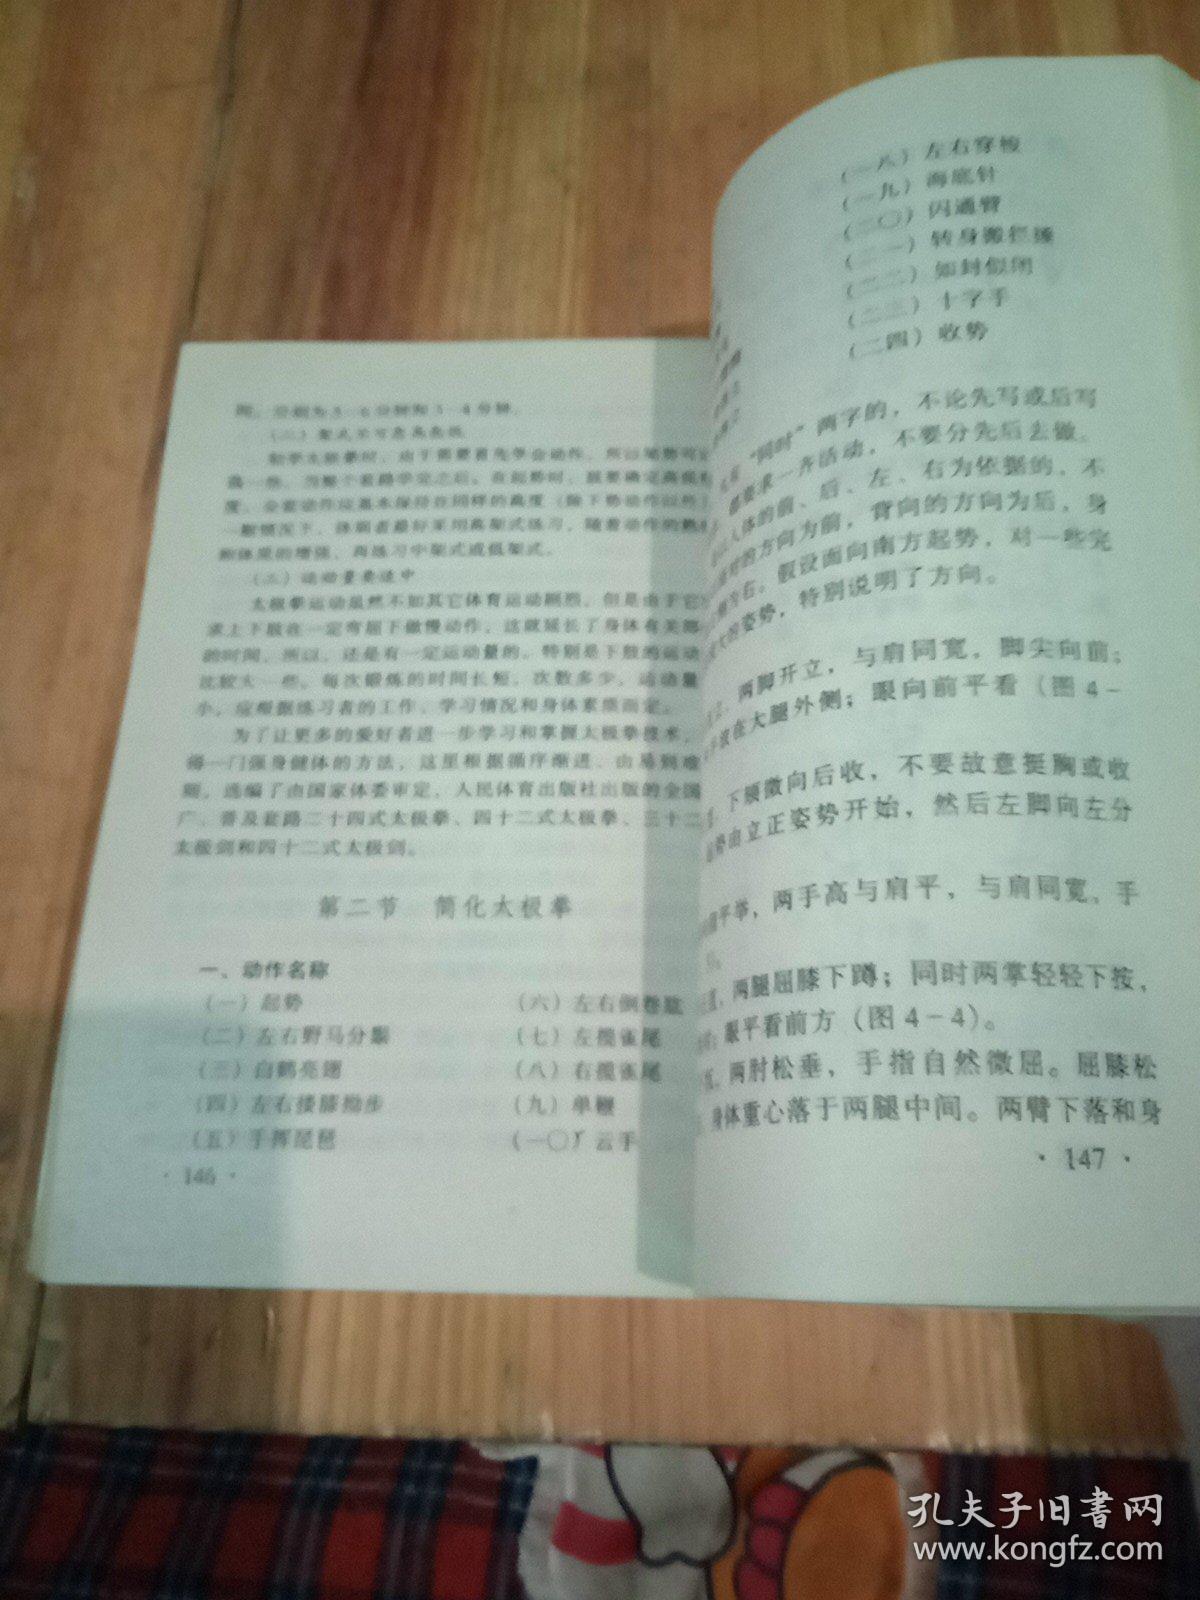 间，分别为5—6分钟和3—4分钟。
(二) 架式不可忽高忽低
初学太极拳时，由于需要首先学会动作，所以姿势可
高一些，当整个套路学完之后，在起势时，就要确定高低
度，全套动作应基本保持在同样的高度（除下势动作以外）
一般情况下，体弱者最好采用高架式练习，随着动作的熟
和体质的增强，再练习中架式或低架式。
(三) 运动量要适中
太极拳运动虽然不如其它体育运动剧烈，但是由于它
求上下肢在一定弯屈下做慢动作，这就延长了身体有关部
的时间，所以，还是有一定运动量的。特别是下肢的运动
比较大一些。每次锻炼的时间长短，次数多少，运动量
小，应根据练习者的工作、学习情况和身体素质而定。
为了让更多的爱好者进一步学习和掌握太极拳技术，
得一门强身健体的方法，这里根据循序渐进、由易到难
则，选编了由国家体委审定、人民体育出版社出版的全国
广、普及套路二十四式太极拳、四十二式太极拳、三十二
太极剑和四十二式太极剑。
第二节 简化太极拳
一、动作名称
（一）起势
（二）左右野马分鬃
（三）白鹤亮翅
（四）左右搂膝拗步
（五）手挥琵琶
（六）左右倒卷肱
（七）左揽雀尾
（八）右揽雀尾
（九）单鞭
（一〇）云手
· 146 ·
（一八）左右穿梭
（一九）海底针
（二〇）闪通臂
（二一）转身搬拦捶
（二二）如封似闭
（二三）十字手
（二四）收势
“同时”两字的，不论先写或后写
都要求一齐活动，不要分先后去做。
以人体的前、后、左、右为依据的，不
对的方向为前，背向的方向为后，身
为右。假设面向南方起势，对一些完
大的姿势，特别说明了方向。
两脚开立，与肩同宽，脚尖向前；
放在大腿外侧；眼向前平看（图4-
下颏微向后收，不要故意挺胸或收
势由立正姿势开始，然后左脚向左分
平举，两手高与肩平，与肩同宽，手
两腿屈膝下蹲；同时两掌轻轻下按，
眼平看前方（图4-4）。
两肘松垂，手指自然微屈。屈膝松
身体重心落于两腿中间。两臂下落和身
· 147 ·
孔夫子旧书网
www.kongfz.com